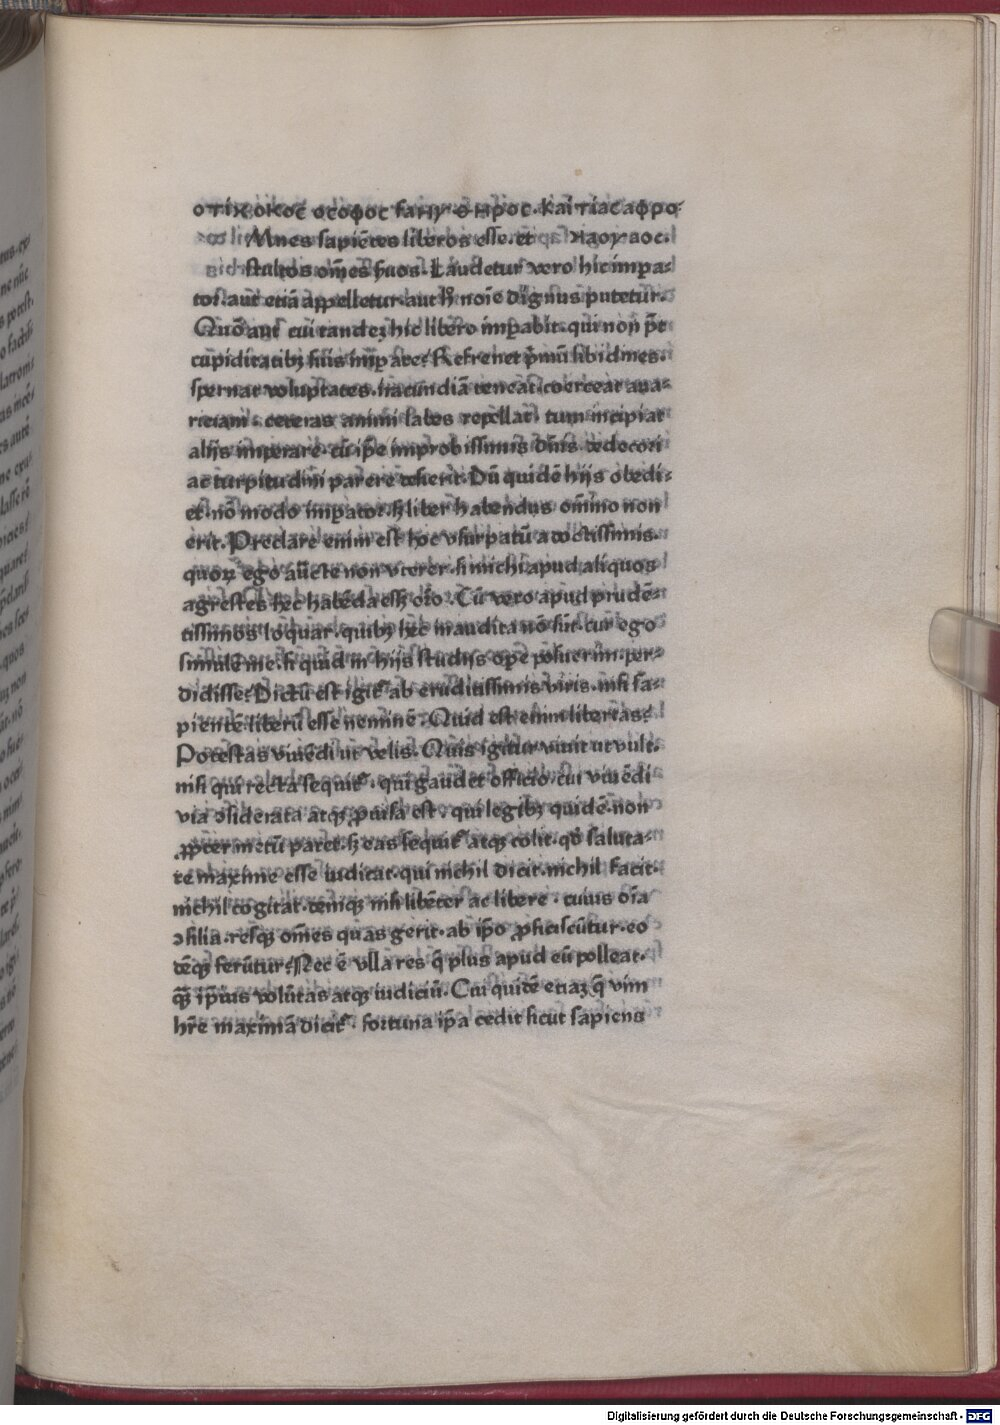 οτιχοκος οσοφος fαηγ·οηρος·Και τιας αφρο
Mnes sapiētes liberos esse·et ꓘδογ αος·
stultos om̄es ẜuos·Laudetur vero hic impa⸗
tor·aut etiā appelletur·aut hͦ noīe dignus putetur·
Quō aut cui tandeȝ hic libero imꝑabit·qui non pt̄
cupiditatibȝ suis imꝑare? Refrenet pͥmū libidines·
spernat voluptates·iracundiā teneat·coerceat aua⸗
riciam·ceteras animi labes repellat· tum incipiat
alijs imperare·cū ip̄e improbissimis dn̄is dedecori
ac turpitudini parere desierit·Dū quidē hijs obedi⸗
et·nō modo imꝑator·ẜ liber habendus om̄ino non
erit·Preclare enim est hoc vsurpatū a doctissimis·
quoꝝ ego auct̄e non vterer·si michi apud aliquos
agrestes hec habēda ess̄ oīo·Cū vero apud prudē⸗
tissimos loquar·quibȝ hec inaudita nō sūt·cur ego
simulē me·si quid in hijs studijs oꝑe posuerim·per⸗
didisse? Dictū est igit͛ ab eruditissimis viris·nisi sa⸗
pientē liberū esse neminē·Quid est enim libertas?
Potestas viuēdi ut velis·Quis igitur viuit ut vult·
nisi qui recta sequit͛·qui gaudet officio·cui viuēdi
via ↄsiderata atqȝ ꝓuisa est·qui legibȝ quidē·non
ꝓpter metū paret·ẜ eas sequit͛ atqȝ colit·qd̄ saluta⸗
re maxime esse iudicat·qui nichil dicit·nichil facit·
nichil cogitat·deniqȝ nisi libēter ac libere·cuius oīa
ↄsilia·resqȝ om̄es quas gerit·ab ip̄o ꝓficiscūtur·eo
dēqȝ ferūtur·Nec ē vlla res q̄ plus apud eū polleat·
qȝ ip̄ius volūtas atqȝ iudiciū·Cui quidē etiaȝ q̄ vim
hr̄e maximā dicit͛·fortuna ip̄a cedit sicut sapiens
Digitalisierung gefördert durch die Deutsche Forschungsgemeinschaft - DFG